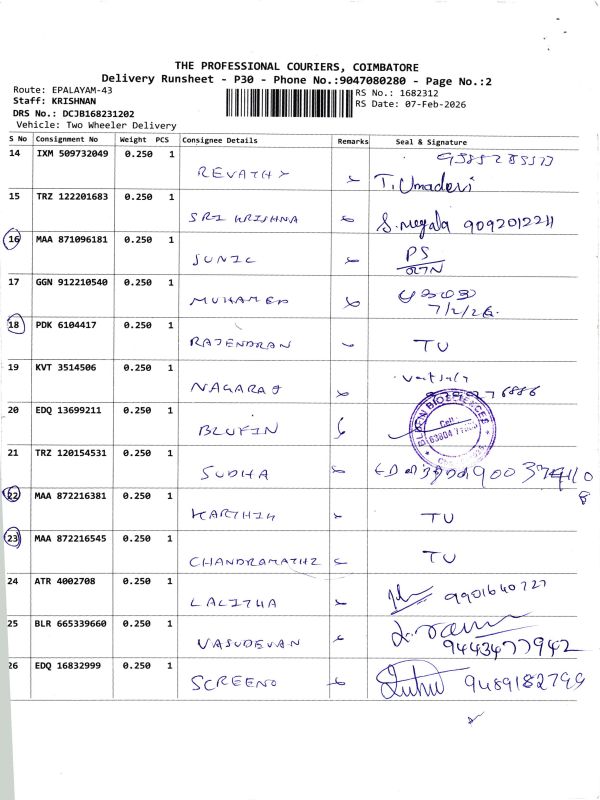 THE PROFESSIONAL COURIERS, COIMBATORE
Delivery Runsheet - P30 - Phone No.:9047080280 - Page No.:2
Route: EPALAYAM-43
Staff: KRISHNAN
DRS No.: DCJB168231202
Vehicle: Two Wheeler Delivery
RS No.: 1682312
RS Date: 07-Feb-2026
S No Consignment No Weight PCS Consignee Details Remarks Seal & Signature
14 IXM 509732049 0.250 1 REVATHY T. Umadevi
15 TRZ 122201683 0.250 1 SRI KRISHNA S. megala 9092012211
16 MAA 871096181 0.250 1 SUNIL PS
17 GGN 912210540 0.250 1 MUHAMED 7/2/26
18 PDK 6104417 0.250 1 RAJENDRAN TU
19 KVT 3514506 0.250 1 NAGARAJ
20 EDQ 13699211 0.250 1 BLUFIN
21 TRZ 120154531 0.250 1 SUDHA
22 MAA 872216381 0.250 1 KARTHIK TU
23 MAA 872216545 0.250 1 CHANDRAMATHI TU
24 ATR 4002708 0.250 1 LALITHA 9901640727
25 BLR 665339660 0.250 1 VASUDEVAN 9443477942
26 EDQ 16832999 0.250 1 SCREENO 9489182799